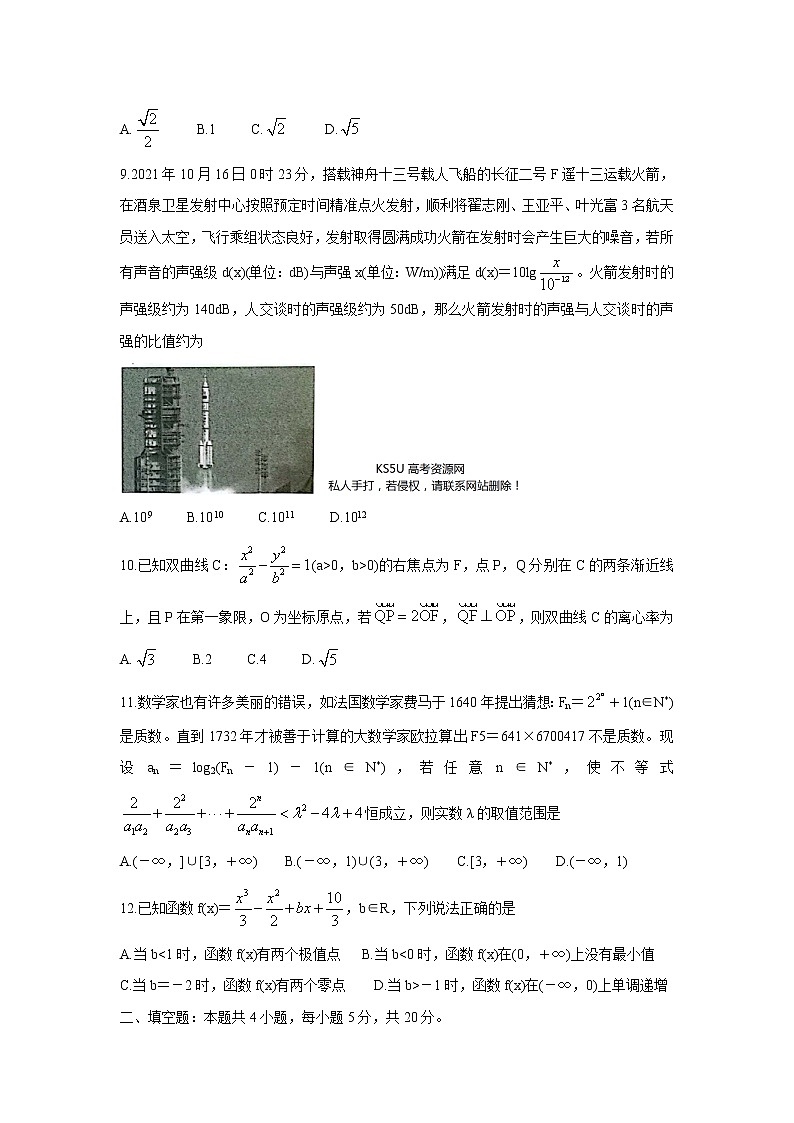 A. √2/2 B.1 C. √2 D. √5
9.2021年10月16日0时23分，搭载神舟十三号载人飞船的长征二号F遥十三运载火箭，
在酒泉卫星发射中心按照预定时间精准点火发射，顺利将翟志刚、王亚平、叶光富3名航天
员送入太空，飞行乘组状态良好，发射取得圆满成功火箭在发射时会产生巨大的噪音，若所
有声音的声强级d(x)(单位：dB)与声强x(单位：W/m))满足d(x)＝10lg x/10⁻¹²。火箭发射时的
声强级约为140dB，人交谈时的声强级约为50dB，那么火箭发射时的声强与人交谈时的声
强的比值约为
KS5U高考资源网
私人手打，若侵权，请联系网站删除！
A.10⁹ B.10¹⁰ C.10¹¹ D.10¹²
10.已知双曲线C：x²/a² − y²/b² = 1(a>0，b>0)的右焦点为F，点P，Q分别在C的两条渐近线
上，且P在第一象限，O为坐标原点，若QP = 2OF，QF ⊥ OP，则双曲线C的离心率为
A. √3 B.2 C.4 D. √5
11.数学家也有许多美丽的错误，如法国数学家费马于1640年提出猜想：Fₙ＝2^(2ⁿ) + 1(n∈N*)
是质数。直到1732年才被善于计算的大数学家欧拉算出F5＝641×6700417不是质数。现
设aₙ＝log₂(Fₙ－1)－1(n∈N*)，若任意n∈N*，使不等式
2/a₁a₂ + 2²/a₂a₃ + ⋯ + 2ⁿ/aₙaₙ₊₁ < λ² − 4λ + 4恒成立，则实数λ的取值范围是
A.(－∞，]∪[3，+∞) B.(－∞，1)∪(3，+∞) C.[3，+∞) D.(－∞，1)
12.已知函数f(x)＝x³/3 − x²/2 + bx + 10/3，b∈R，下列说法正确的是
A.当b<1时，函数f(x)有两个极值点 B.当b<0时，函数f(x)在(0，+∞)上没有最小值
C.当b＝－2时，函数f(x)有两个零点 D.当b>－1时，函数f(x)在(－∞，0)上单调递增
二、填空题：本题共4小题，每小题5分，共20分。